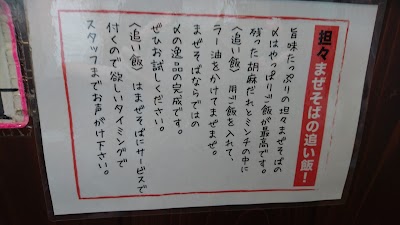 担々まぜそばの追い飯!
旨味たっぷりの担々まぜそばの
〆はやっぱりご飯が最高です。
残った胡麻だれとミンチの中に
〈追い飯〉用ご飯を入れて、
ラー油をかけてまぜまぜ。
まぜそばならではの
〆の逸品の完成です。
ぜひお試しください。
〈追い飯〉はまぜそばにサービスで
付くので欲しいタイミングで
スタッフまでお声がけ下さい。